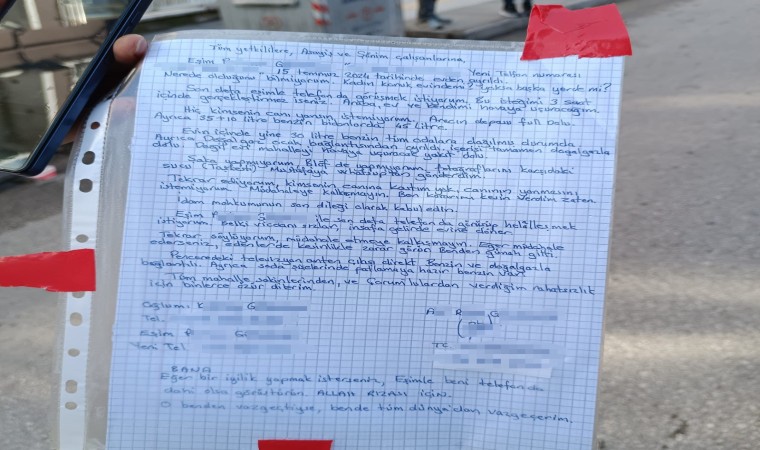 Tüm yetkililere, Asayiş ve Şönim çalışanlarına,
Eşim F G Yeni Telfon numarası
15 Temmuz 2024 tarihinde evden ayrıldı.
Nerede olduğunu bilmiyorum. Kadın konuk evindemi? Yoksa başka yerde mi?
Son defa eşimle telefonda görüşmek istiyorum. Bu isteğimi 3 saat
içinde gerçekleştirmez iseniz. Araba, ev ve kendimi havaya uçuracağım.
Hiç kimsenin canı yansın istemiyorum. Aracın deposu full dolu.
Ayrıca 35+10 litre benzin bidonlarda 45 Litre.
Evin içinde yine 30 litre benzin tüm odalara dağılmış durumda
Ayrıca Doğalgaz ocak bağlantısından ayrıldı, içerisi tamamen doğalgazla
dolu. Değil evi mahalleyi havaya uçuracak yakıt dolu.
Şaka yapmıyorum. Blöf de yapmıyorum fotoğrafların karşıdaki
sucu (Taştem) Mustafaya whatsuptan gönderdim.
Tekrar ediyorum, kimsenin canına kastım yok, canının yanmasını
istemiyorum. Müdahaleye kalkmayın. Ben kararımı kesin verdim zaten.
İdam mahkumunun son dileği olarak kabul edin.
Eşim F G ile son defa telefonda görüşüp helâlleşmek
istiyorum. Belki vicdanı sızlar, insafa gelirde evine döner.
Tekrar söylüyorum, müdahale etmeye kalkışmayın. Eğer müdahale
ederseniz, edenlerde kesinlikle zarar görür. Benden günah gitti.
Penceredeki televizyon anten çıkışı direkt Benzin ve doğalgazla
bağlantılı. Ayrıca soda şişelerinde patlamaya hazır benzin var.
Tüm mahalle sakinlerinden, ve Sorumlulardan verdiğim rahatsızlık
için binlerce özür dilerim.
Oğlum: K G A R G
Tel.
Eşim F G
Yeni Tel TC
BANA
Eğer bir iyilik yapmak isterseniz, Eşimle beni telefonda
dahi olsa görüştürün. ALLAH RIZASI İÇİN.
O benden vazgeçtiyse, bende tüm dünya'dan vazgeçerim.